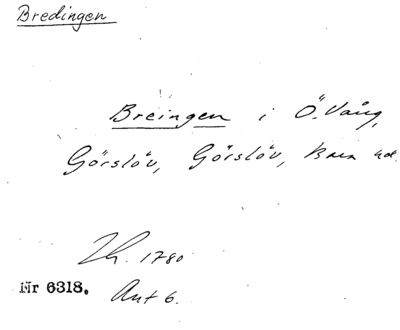 Bredingen
Breingen i Ö. Vång,
Görslöv, Görslöv, Bara hd.
Lh. 1780
Nr 6318. Akt 6.